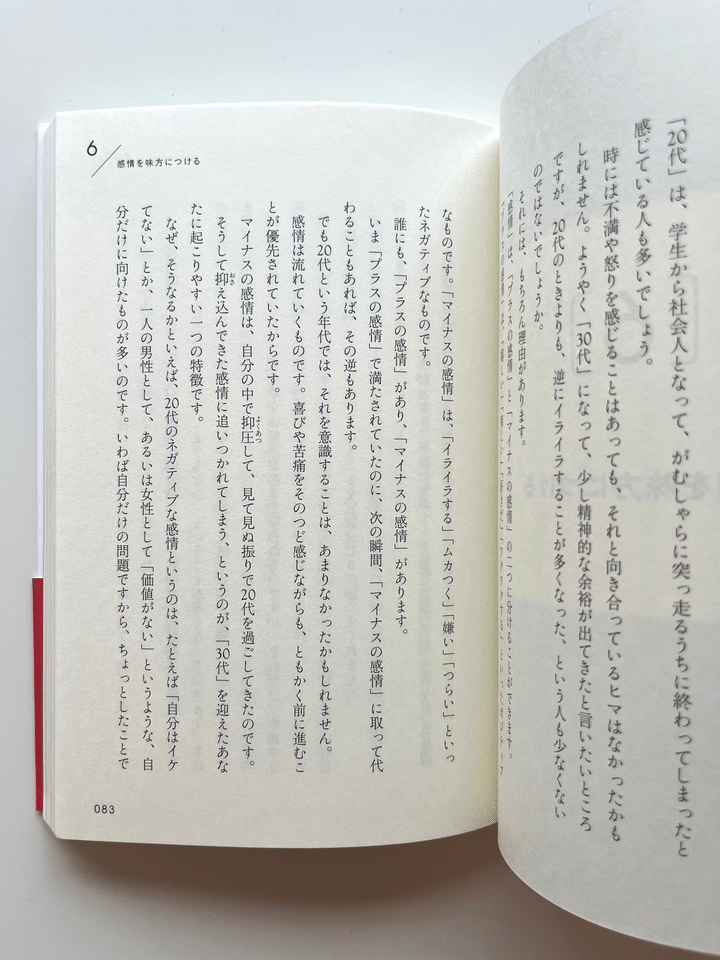 「20代」は、学生から社会人となって、がむしゃらに突っ走るうちに終わってしまったと
感じている人も多いでしょう。
時には不満や怒りを感じることはあっても、それと向き合っているヒマはなかったかも
しれません。ようやく「30代」になって、少し精神的な余裕が出てきたと言いたいところ
ですが、20代のときよりも、逆にイライラすることが多くなった、という人も少なくない
のではないでしょうか。
それには、もちろん理由があります。
「感情」は、「プラスの感情」と「マイナスの感情」の二つに分けることができます。
6
感情を味方につける
なものです。「マイナスの感情」は、「イライラする」「ムカつく」「嫌い」「つらい」といっ
たネガティブなものです。
誰にも、「プラスの感情」があり、「マイナスの感情」があります。
いま「プラスの感情」で満たされていたのに、次の瞬間、「マイナスの感情」に取って代
わることもあれば、その逆もあります。
でも20代という年代では、それを意識することは、あまりなかったかもしれません。
感情は流れていくものです。喜びや苦痛をそのつど感じながらも、ともかく前に進むこ
とが優先されていたからです。
マイナスの感情は、自分の中で抑圧して、見て見ぬ振りで20代を過ごしてきたのです。
そうして抑え込んできた感情に追いつかれてしまう、というのが、「30代」を迎えたあな
たに起こりやすい一つの特徴です。
なぜ、そうなるかといえば、20代のネガティブな感情というのは、たとえば「自分はイケ
てない」とか、一人の男性として、あるいは女性として「価値がない」というような、自
分だけに向けたものが多いのです。いわば自分だけの問題ですから、ちょっとしたことで
083